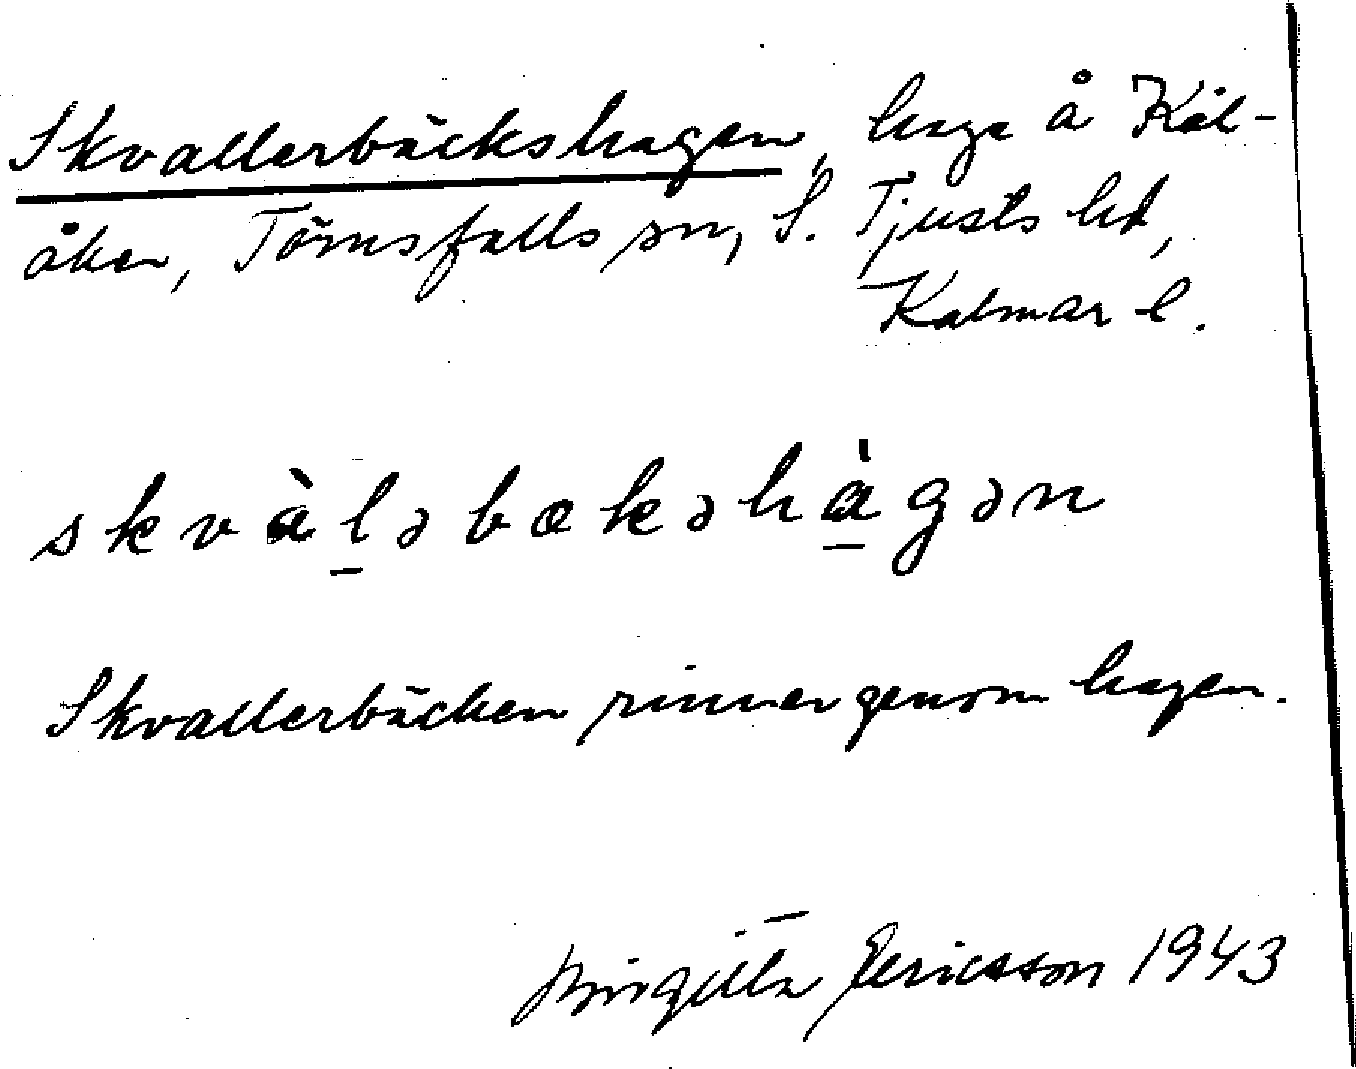 Skvallerbäckshagen, hage å Kål-
åker, Törnsfalls sn, S. Tjusts hd,
Kalmar l.
skvàl̲əbækəhà̲gən
Skvallerbäcken rinner genom hagen.
Birgitta Ericsson 1943